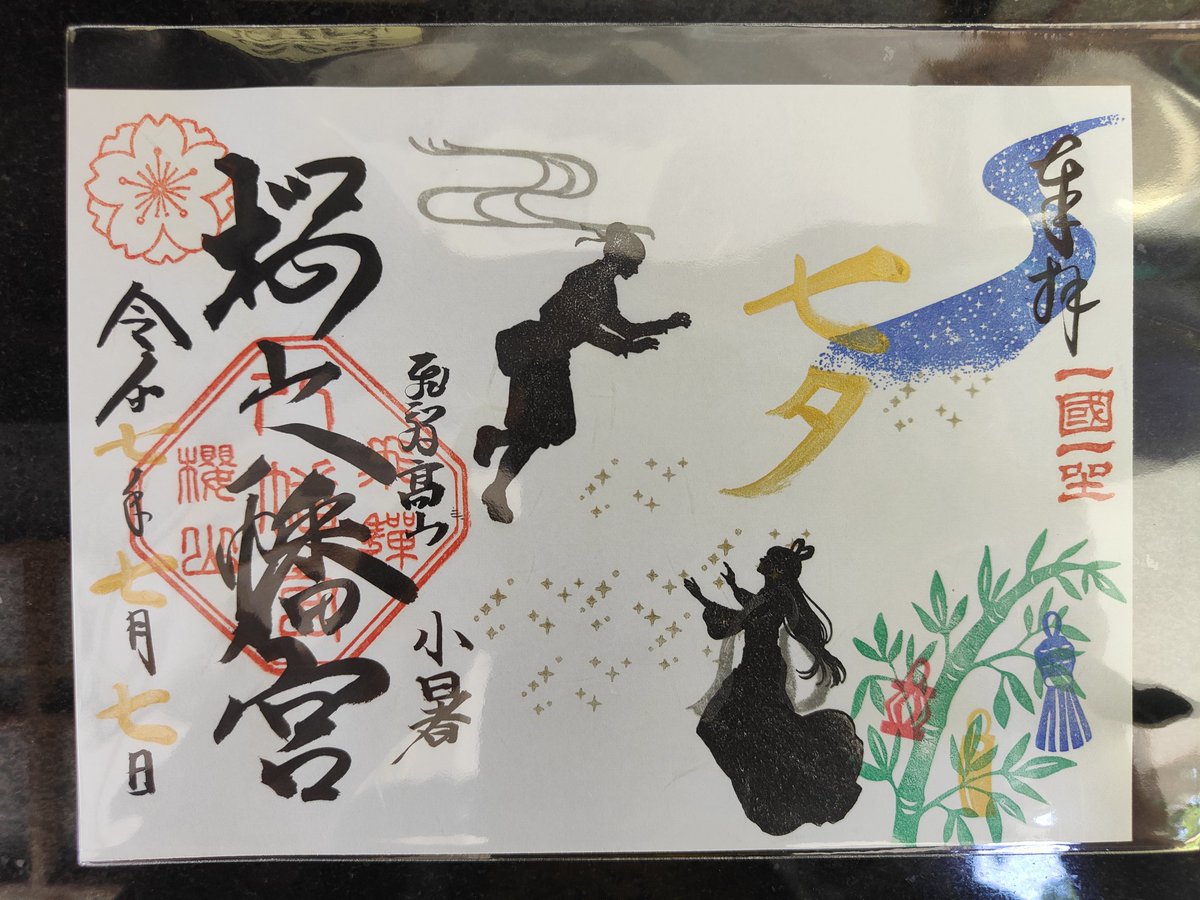 奉拝
一國一
七夕
飛騨髙山
小暑
桜山八幡宮
飛驒
八幡宮
櫻山
令和七年七月七日